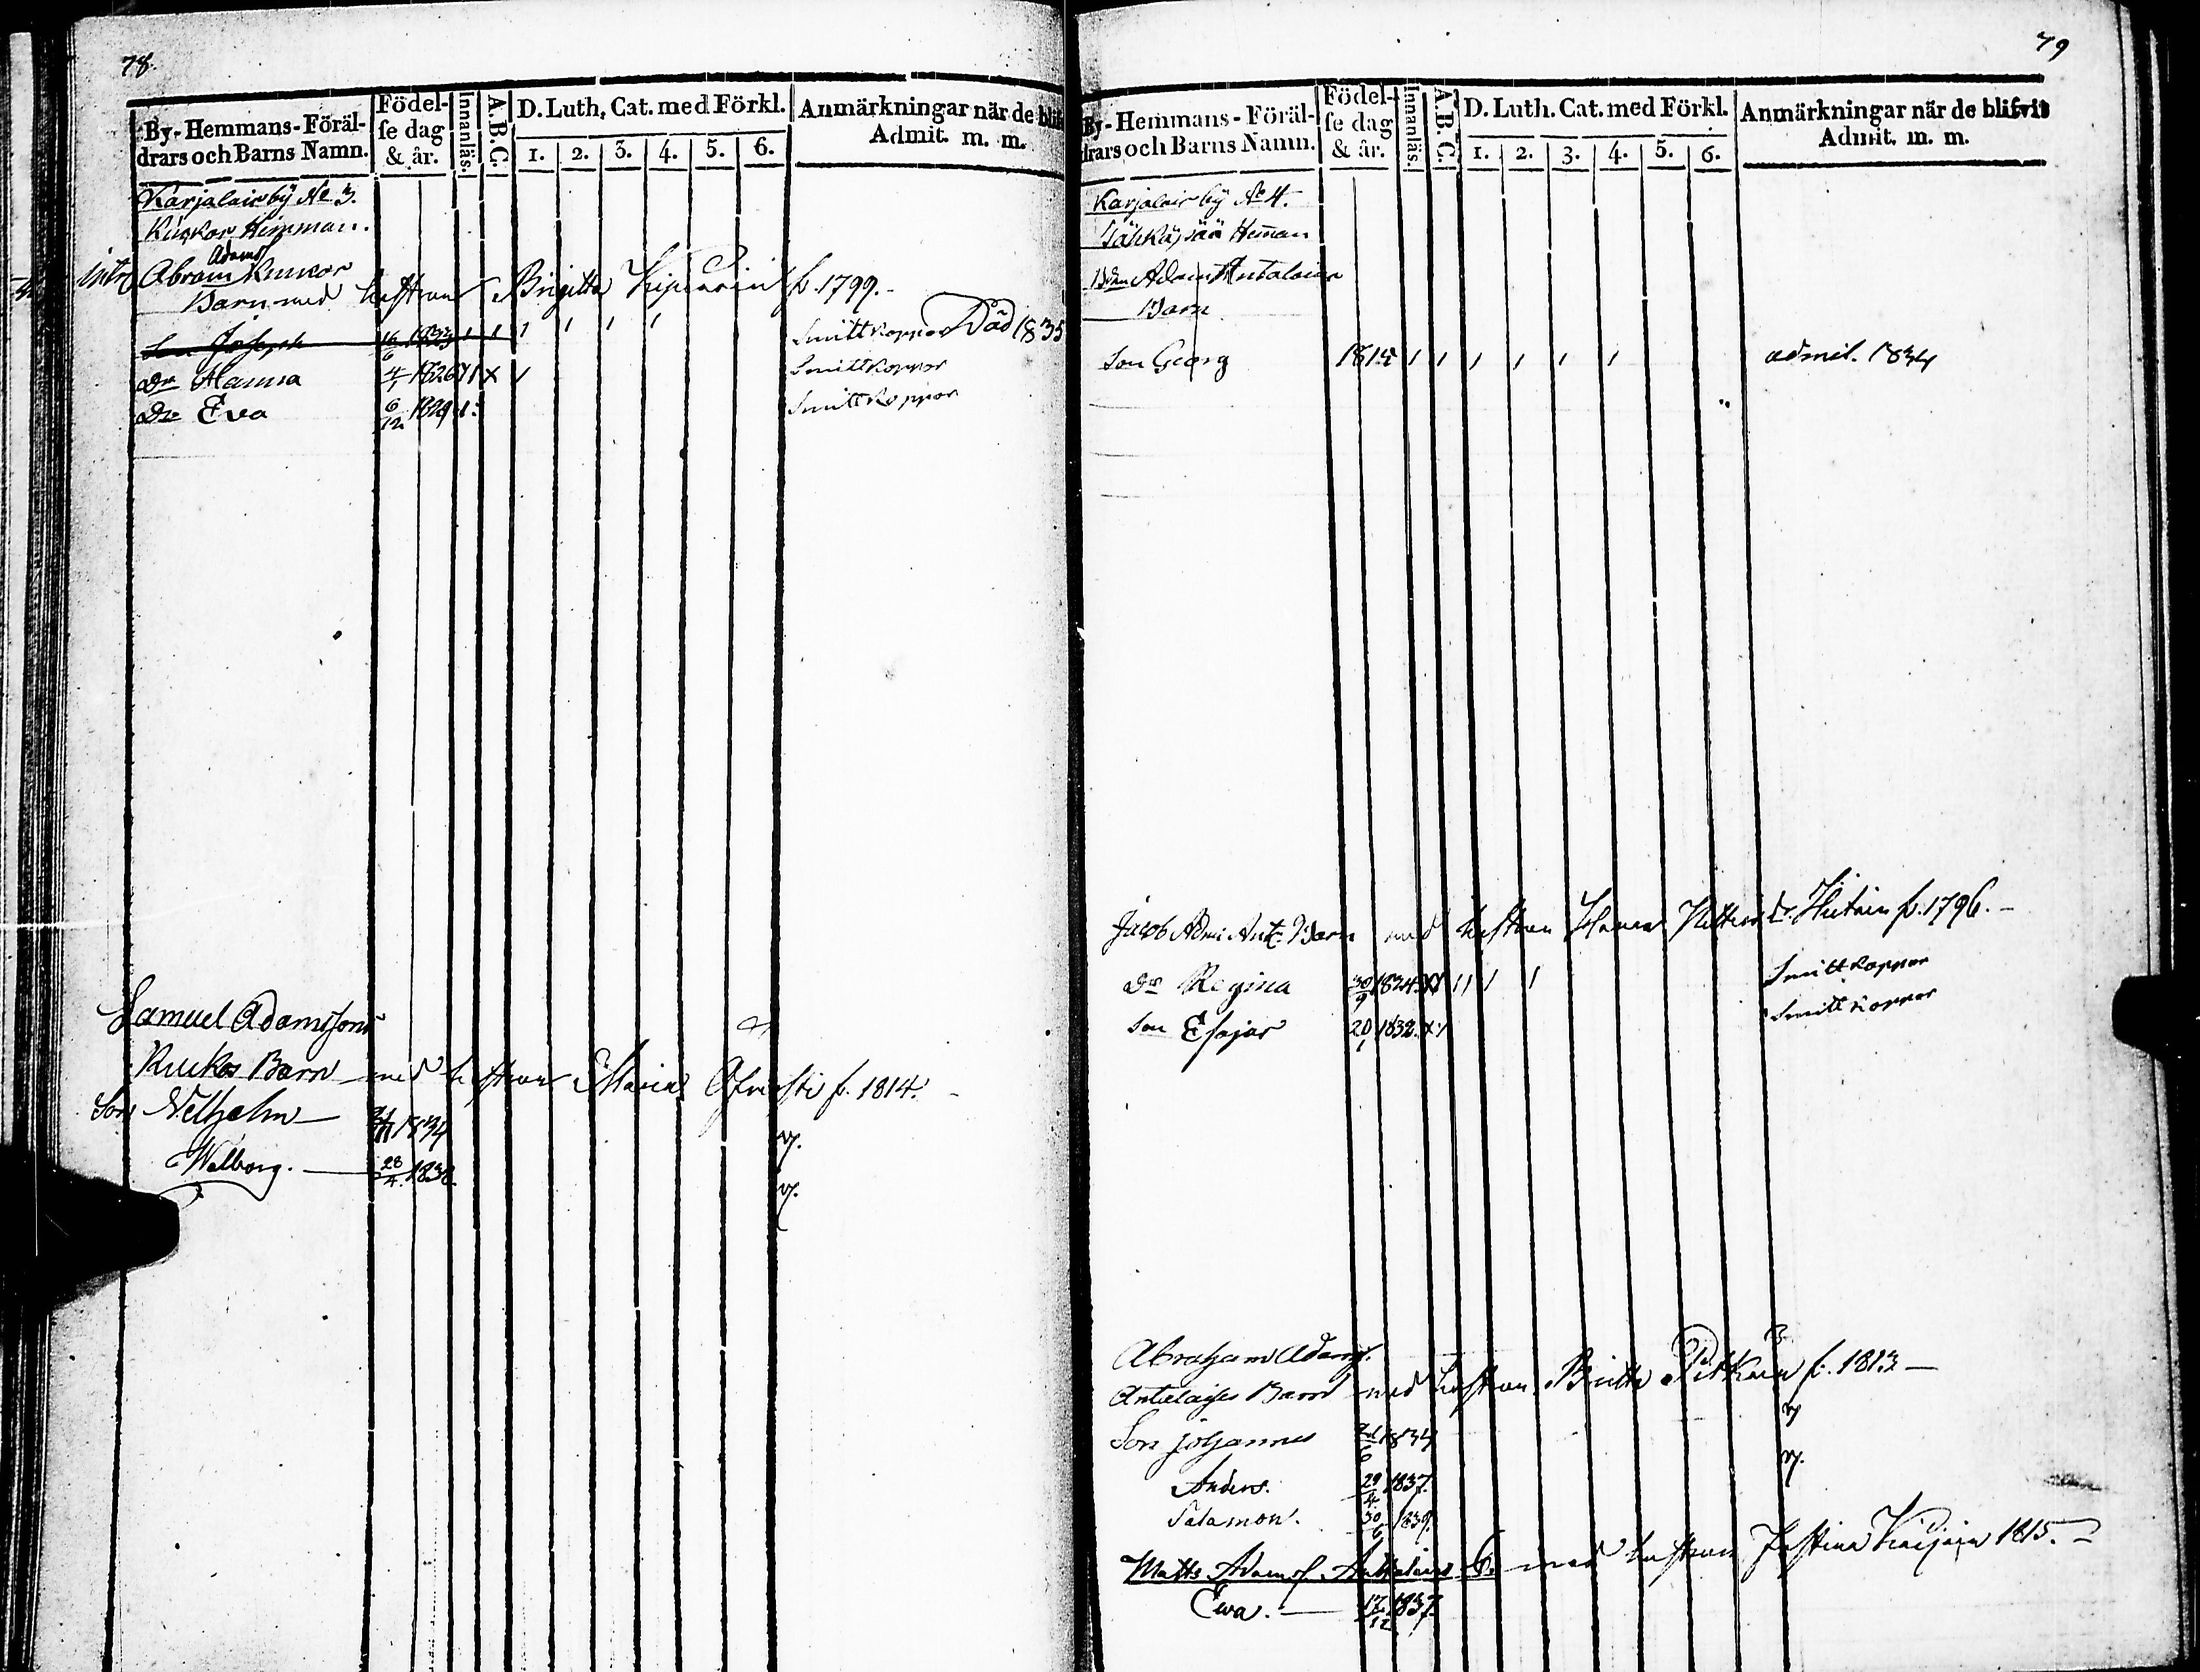 78.
By- Hemmans- Föräl-
drars och Barns Namn.
Födel-
se dag
& år.
Innanläs.
A. B. C.
D. Luth. Cat. med Förkl.
1. 2. 3. 4. 5. 6.
Anmärkningar när de blif
Admit. m. m.
Karjalais bÿ No 3.
Hemman.
Adamsson
Abram
Barn med hustrun Brigitta f. 1799.
Son Joseph 16/6 1823 Smittkoppor Död 1835
Dr Hanna 4/1 1826 Smittkoppor
Dr Eva 6/12 1829 Smittkoppor
Samuel Adamssons
Barn med hustrun Maria f. 1814.
Son Vilhelm 1834 v.
Walborg. 28/4 1838 v.
79
By- Hemmans- Föräl-
drars och Barns Namn.
Födel-
se dag
& år.
Innanläs.
A. B. C.
D. Luth. Cat. med Förkl.
1. 2. 3. 4. 5. 6.
Anmärkningar när de blifvit
Admit. m. m.
Karjalais bÿ No 4.
Hemman
Adam Antalainen
Barn
Son Georg 1815 admit. 1834
Jacob Adms Ant. Barn med hustrun f. 1796.
Dr Regina 30/9 1824 Smittkoppor
Son Esajas 20/1 1832 Smittkoppor
Abraham Adams.
Antalaises Barn med hustrun Britta Pitkäin f. 1813
Son Johannes 1834 v
Anders. 29/4 1837. v.
Salamon. 30/6 1839.
Matts Adamss. Antalaines B. med hustrun Justina 1815.
Ewa. 17/12 1837.